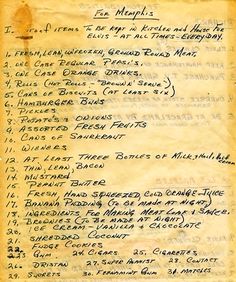 For Memphis
I. List of Items To Be Kept in Kitchen and House For
Elvis - At All Times - Everyday.
1. Fresh, Lean, Unfrozen, Ground Round Meat,
2. One Case Regular Pepsi's,
3. One Case Orange Drinks.
4. Rolls (Hot Rolls - Brown & Serve)
5. Cans of Biscuits (At Least Six)
6. Hamburger Buns
7. Pickles
8. Potato's & Onions
9. Assorted Fresh Fruits
10. Cans of Saurkraut
11. Wieners
12. At Least Three Bottles of Milk & Half & Half Cream
13. Thin Lean Bacon
14. Mustard
15. Peanut Butter
16. Fresh, Hand Squeezed Cold Orange Juice
17. Banana Pudding (To Be Made At Night)
18. Ingredients For Making Meat Loaf & Sauce.
19. Brownies (To Be Made At Night)
20. Ice Cream - Vanilla & Chocolate
21. Shredded Coconut
22. Fudge Cookies
23. Gum 24. Cigars 25. Cigarettes
26. Dristan 27. Super Anahist 28. Contact
29. Sucrets 30. Feenamint Gum 31. Matches